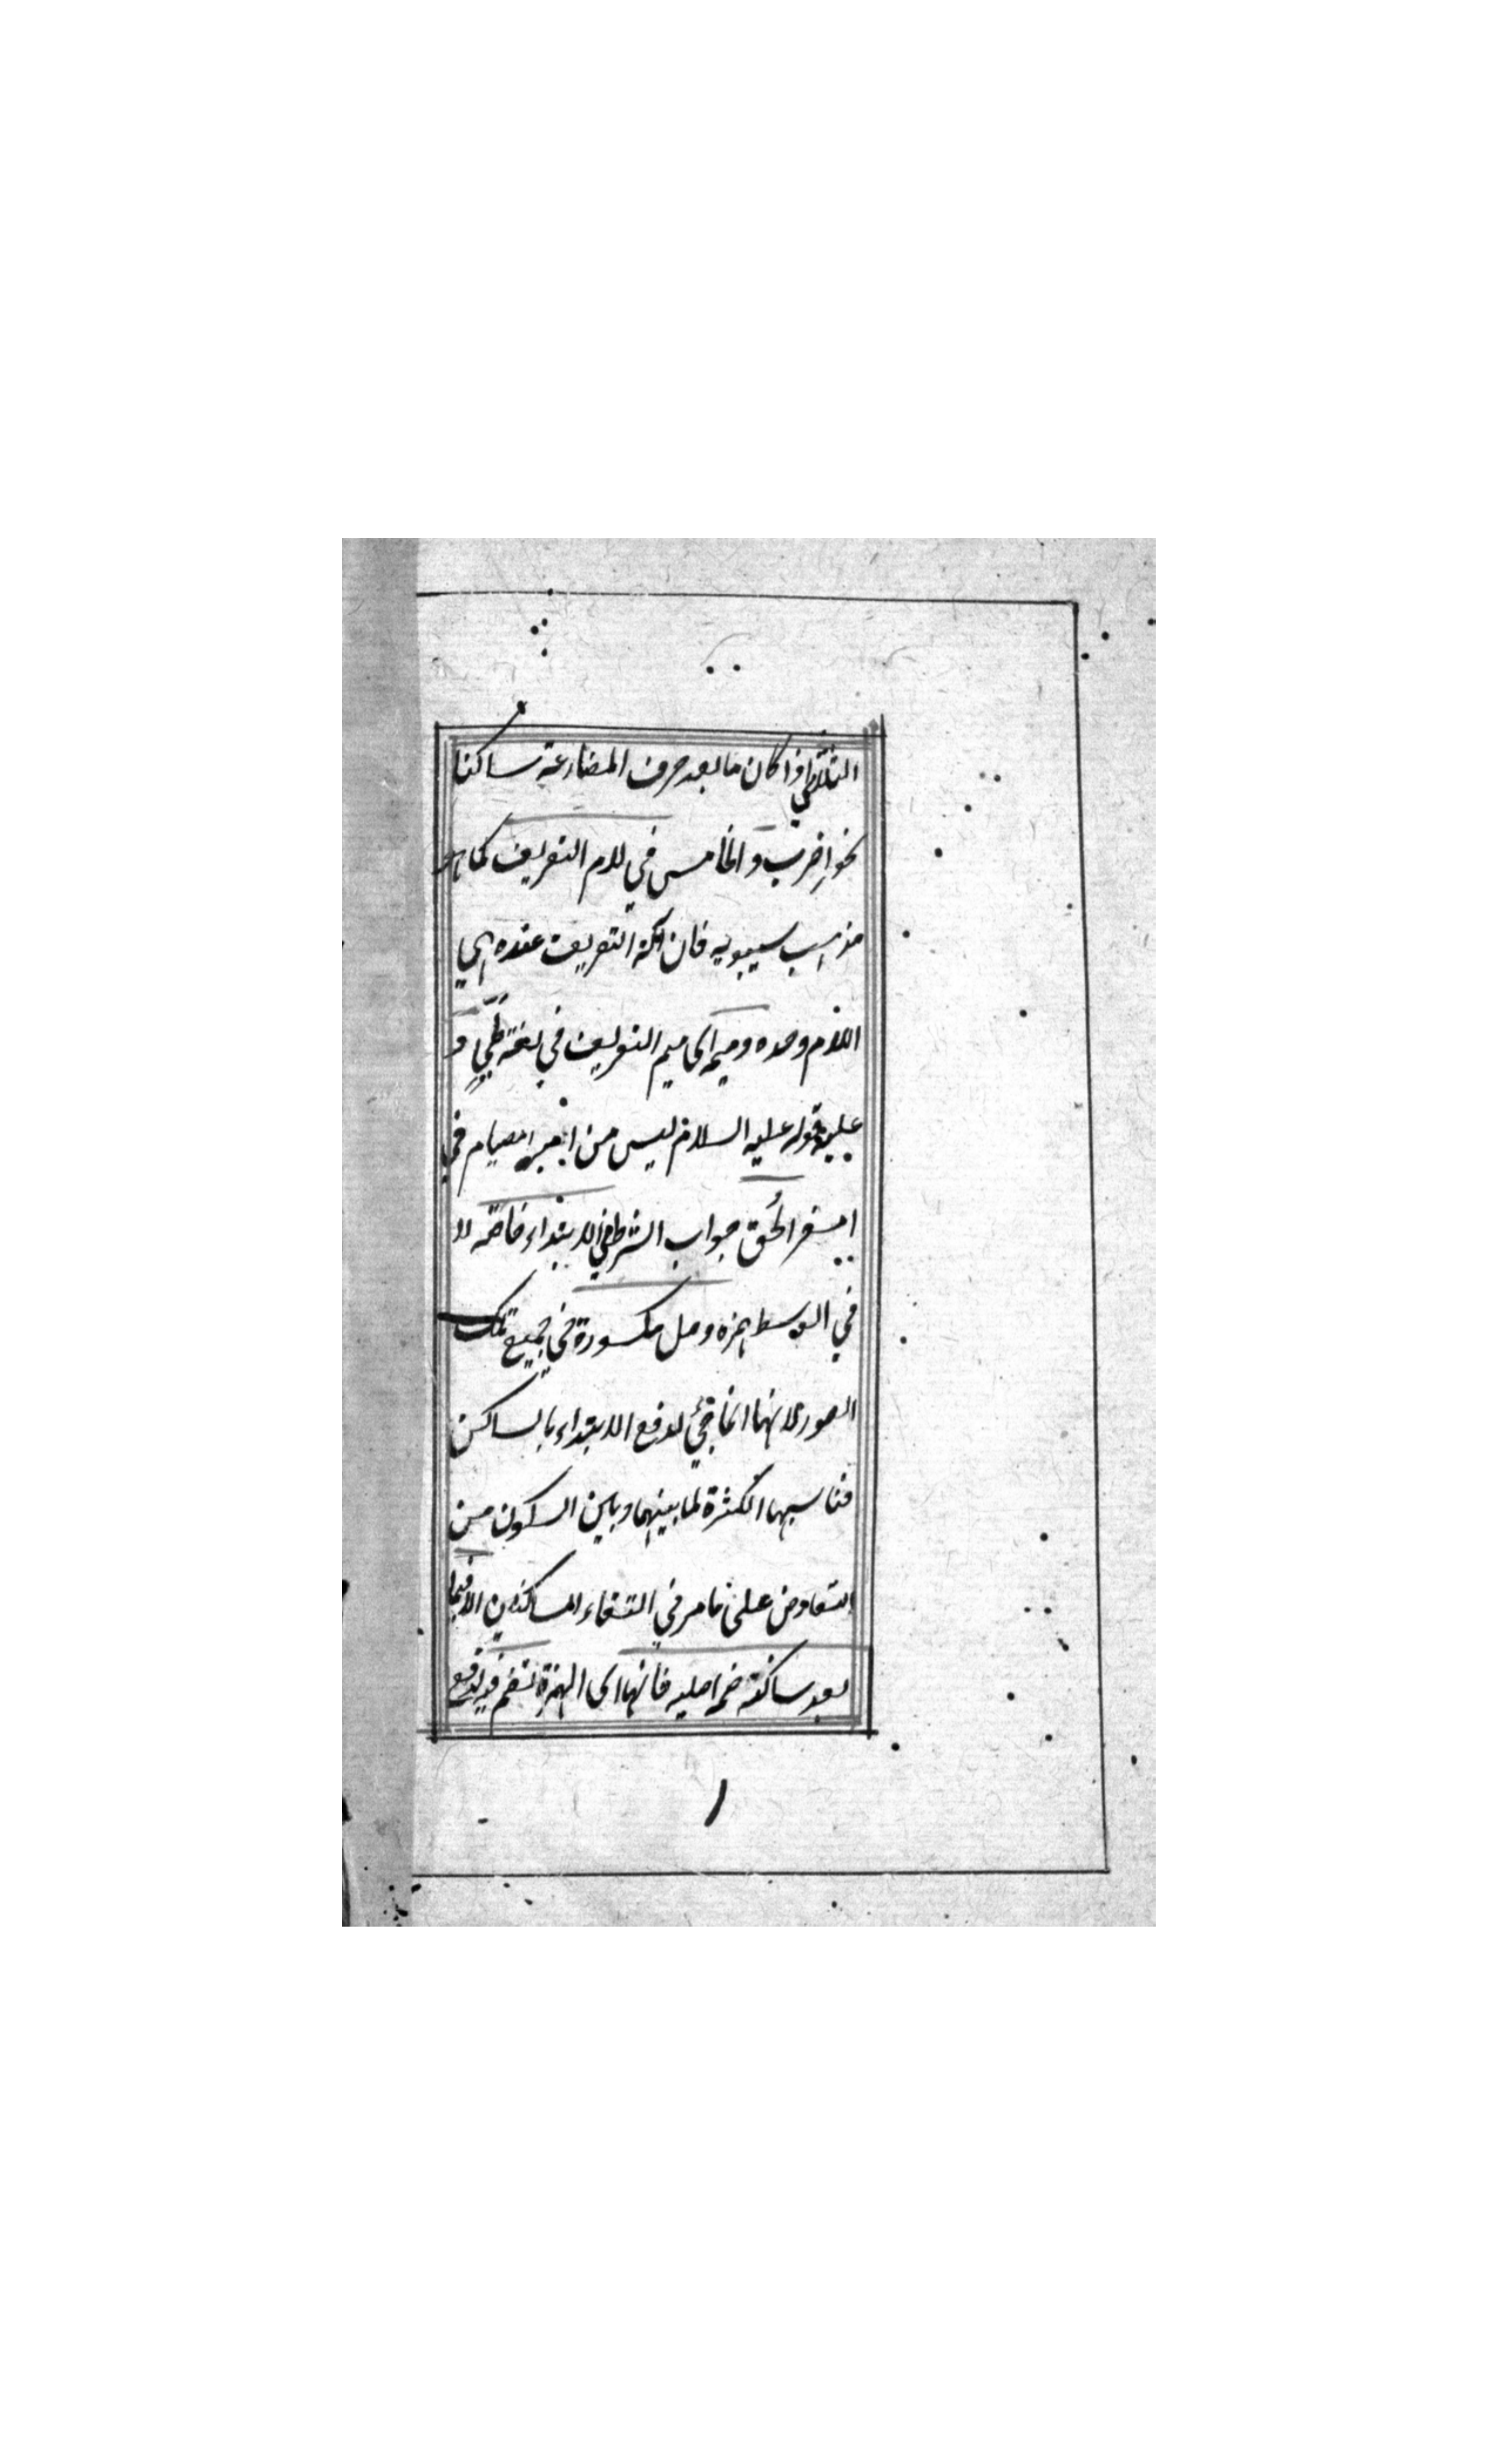 الثلاثي اذا كان ما بعد حرف المضارعة ساكنا
نحو اِضرب والخامس في لام التعريف كما هو
مذهب سيبويه فان آلة التعريف عنده هي
اللام وحده وميمه اى ميم التعريف في لغة طيّ و
عليه قوله عليه السلام ليس من امبر امصيام في
امسفر اُلحق جواب الشرط في الابتداء خاصة لا
في الوسط همزه وصل مكسورة في جميع تلك
الصور لانها انما تجئ لدفع الابتداء بالساكن
فناسبها الكسرة لما بينهما وبين السكون من
التعاوض على ما مر في التقاء الساكنين الا فيما
بعد ساكنه ضمه اصليه فانها اى الهمزة تضم فيه لدفع
١